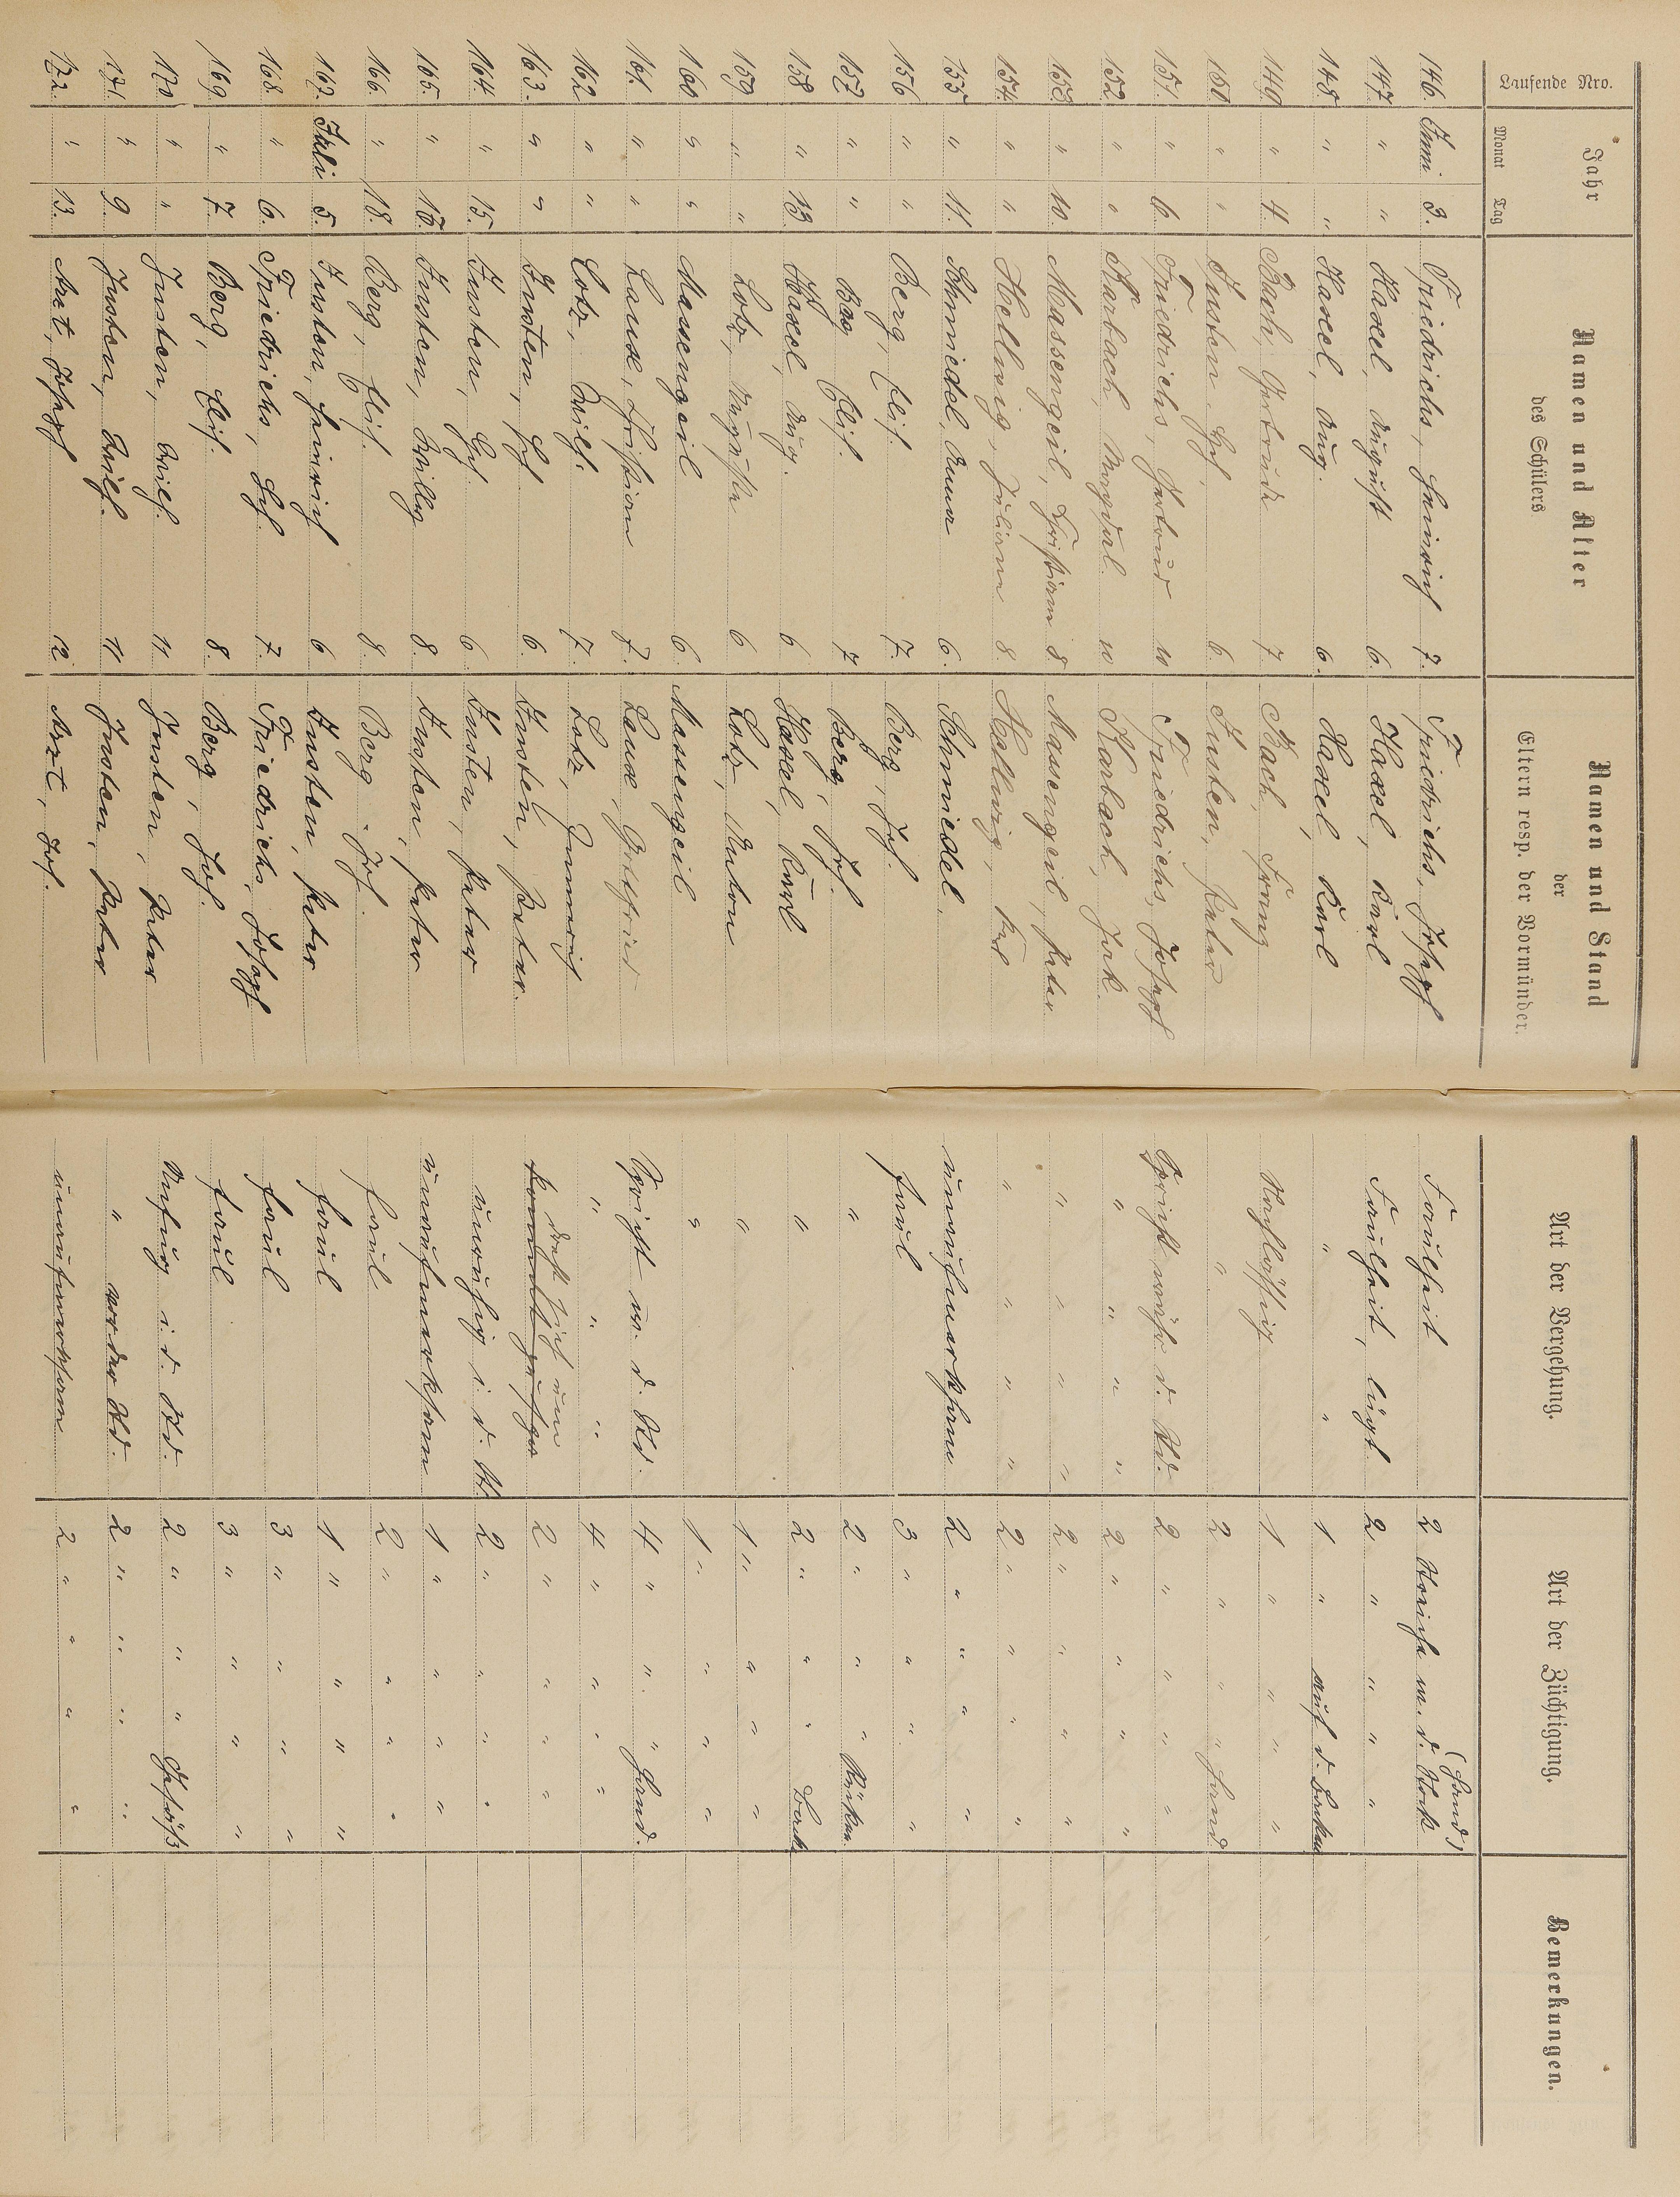 Laufende Nro. Jahr Monat Tag Namen und Alter des Schülers Namen und Stand der Eltern resp. der Vormünder. Art der Vergehung. Art der Züchtigung. Bemerkungen.
146. Juni 3. Friedrichs, Heinrich 7. Friedrichs, Joseph Faulheit 2 Streiche m. d. Stock (Hand)
147. " " Haxel, August 6. Haxel, Karl Faulheit, lügt 2 " " " "
148. " " Haxel, Aug. 6. Haxel, Karl " " 1 " auf d. Backen
149. " 4. Bach, Gertrude 7. Bach, Franz Nachlässig 1 " " " "
150. " " Justen, Jos. 6. Justen, Peter " 2 " " " Hand
151. " 6. Friedrichs, Gertrud 10 Friedrichs, Joseph Spricht währ. d. Std. 2 " " " "
152. " " Karbach, Magdal. 10 Karbach, Jak. " " " " 2 " " " "
153. " 10. Massengeil, Christian 8. Massengeil, Peter " " " " 2 " " " "
154. " " Hellwig, Juliane 8. Hellwig, " " " " 2 " " " "
155. " 11. Schmiedel, Anna 6. Schmiedel. unaufmerksam 2 " " " "
156. " " Berg, Elis. 7. Berg, Jos. faul 3 " " " "
157. " " Berg Elis. 7 Berg, Jos. " 2 " " " Rücken.
158. " 13. Haxel, Aug. 6 Haxel, Karl " 2 " " " Back.
159. " " Lotz, Auguste 6 Lotz, Anton " 1 " " " "
160 " " Massengeil 6. Massengeil " 1 " " " "
161. " " Laux, Christian 7. Laux, Gottfried Spricht w. d. Std. 4 " " " Hand.
162 " " Lotz, Wilh. 7. Lotz, Heinrich " " " 4 " " "
163. " " Justen, Jos. 6. Justen, Peter. dreht sich um 2 " " " "
164. " 15. Justen, Jos. 6 Justen, Peter unruhig i. d. Std. 2 " " " "
165. " 16. Justen, Willy 8. Justen, Peter unaufmerksam 1 " " " "
166. " 18. Berg, Elis. 8. Berg, Jos. faul 2 " " " "
167. Juli 5. Justen, Heinrich 6 Justen, Peter faul 1 " " " "
168. " 6. Friedrichs, Jos. 7. Friedrichs, Joseph faul 3 " " " "
169. " 7. Berg, Elis. 8. Berg, Jos. faul 3 " " " "
170 " " Justen, Wilh. 11 Justen, Peter Unfug i. d. Std. 2 " " " Gesäß
171. " 9. Justen, Wilh. 11 Justen, Peter " vor der Std. 2 " " " "
172. " 13. Arzt, Joseph 12. Arzt, Jos. unaufmerksam 2 " " " "